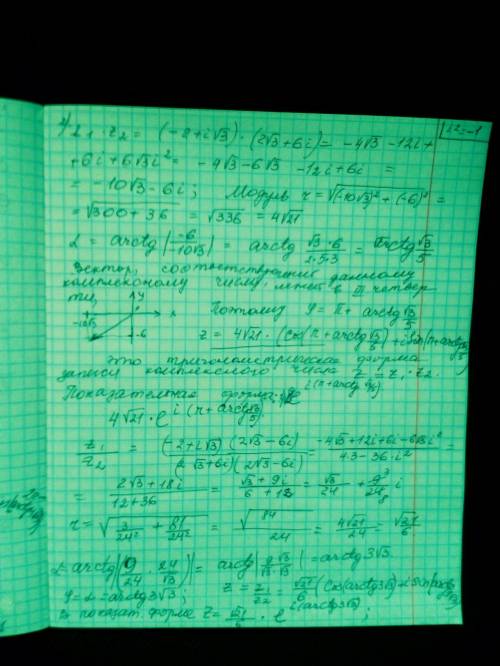 z₁·z₂ = (-2+i√3)·(2√3+6i) = -4√3 -12i+
i²=-1
+6i+6√3i² = -4√3-6√3 -12i+6i =
= -10√3-6i; Модуль r=√(-10√3)²+(-6)² =
= √300+36 = √336 = 4√21
α = arctg|-6/-10√3| = arctg √3·6/2·5·3 = arctg √3/5
Вектор, соответствующий данному
комплексному числу, лежит в III четвер
ти,
y
x
-10√3
-6
Поэтому φ = π+ arctg √3/5
z = 4√21·(cos(π+arctg √3/5)+i sin(π+arctg √3/5)
Это тригонометрическая форма
записи комплексного числа z = z₁·z₂.
Показательная форма:
4√21·e^i(π+arctg √3/5)
z₁/z₂ = (-2+i√3)(2√3-6i)/(2√3+6i)(2√3-6i) = -4√3+12i+6i-6√3i²/4·3-36·i² =
= 2√3+18i/12+36 = √3/24 + 9/24 i
r = √3/24² + 81/24² = √84/24 = √21
α = arctg|9/24 · 24/√3| = arctg|9√3/√3·√3| = arctg3√3.
φ = α = arctg3√3;
z = z₁/z₂ = (cos(arctg3√3)+i sin(arctg3√3)
В показат. форме z = e^i(arctg3√3);